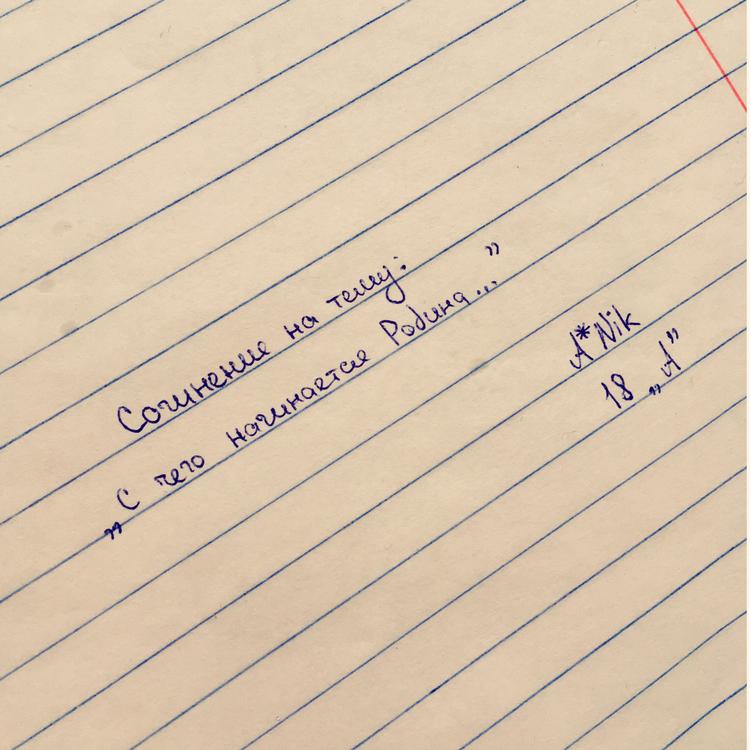 Сочинение на тему:
„С чего начинается Родина...”
A*Nik
18 „А”